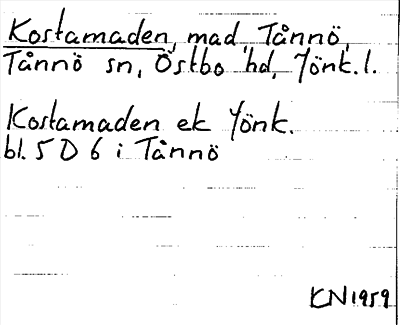 Kostamaden, mad, Tånnö,
Tånnö sn, Östbo hd, Jönk. l.
Kostamaden ek Jönk.
bl. 5 D 6 i Tånnö
KN 1959